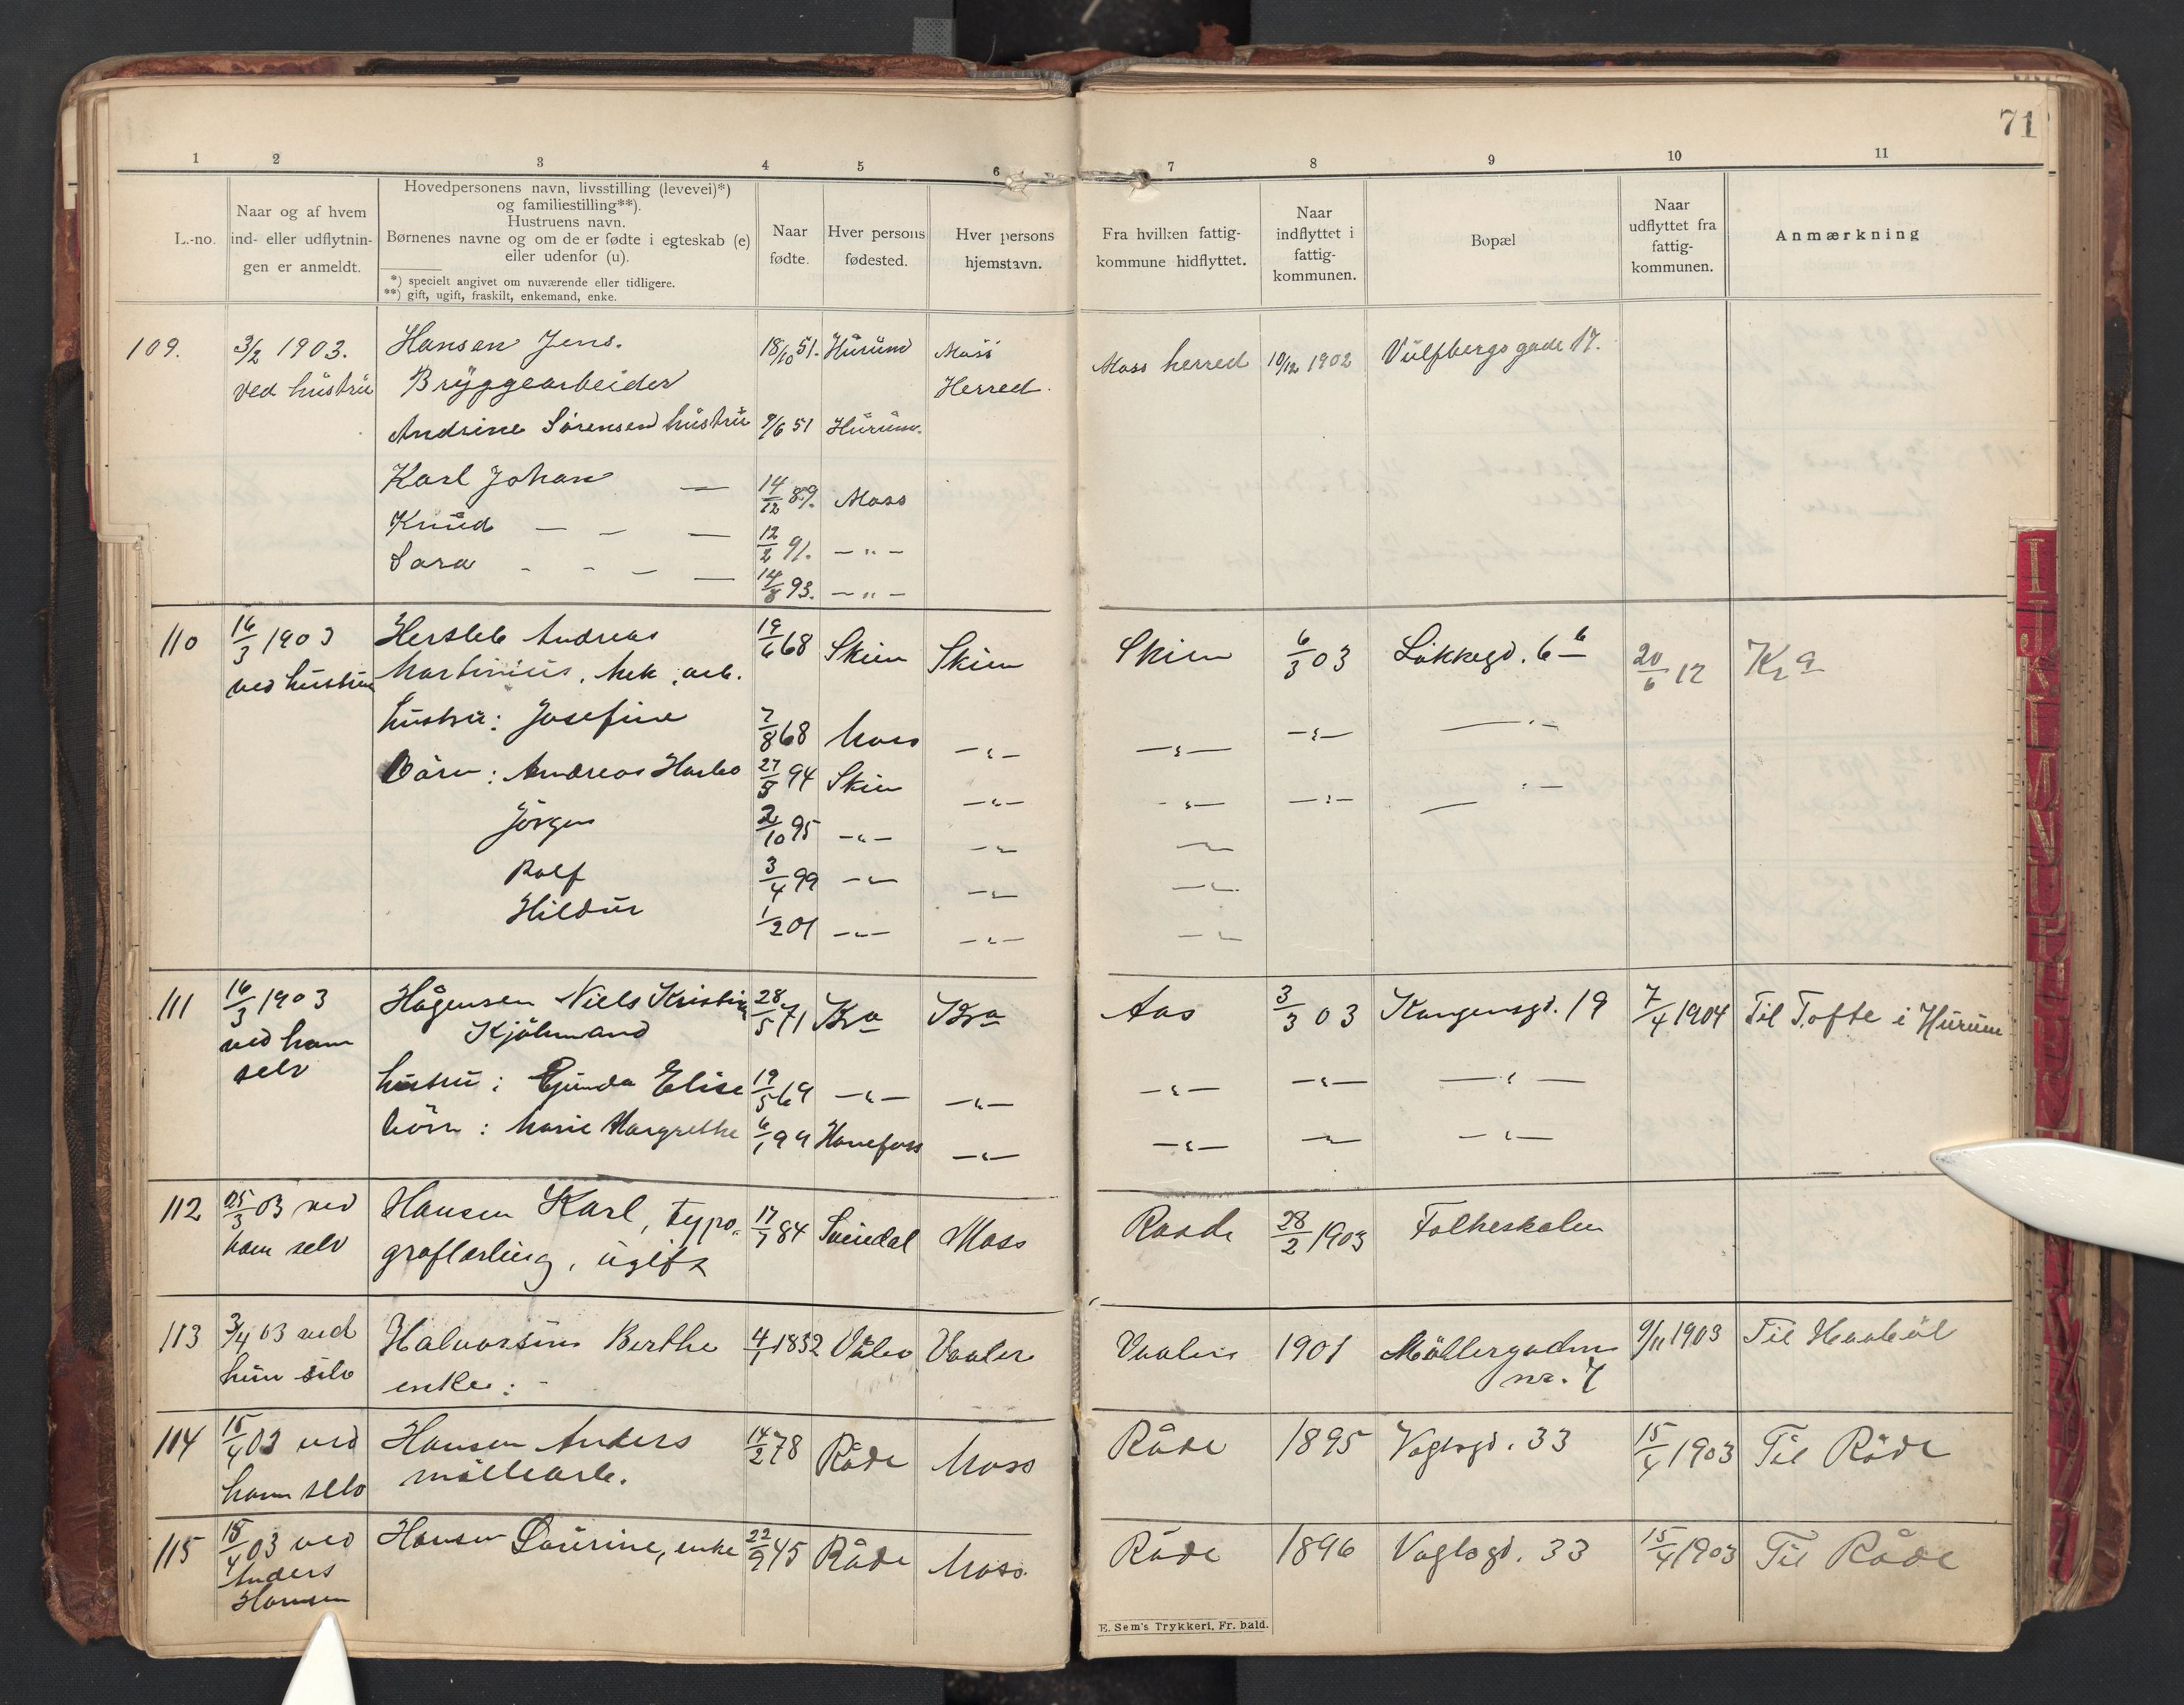 71
1 2 3 4 5 6 7 8 9 10 11
L.-no.
Naar og af hvem
ind- eller udflytnin-
gen er anmeldt.
Hovedpersonens navn, livsstilling (levevei)*)
og familiestilling**).
Hustruens navn.
Børnenes navne og om de er fødte i egteskab (e)
eller udenfor (u).
*) specielt angivet om nuværende eller tidligere.
**) gift, ugift, fraskilt, enkemand, enke.
Naar
fødte.
Hver persons
fødested.
Hver persons
hjemstavn.
Fra hvilken fattig-
kommune hidflyttet.
Naar
indflyttet i
fattig-
kommunen.
Bopæl
Naar
udflyttet fra
fattig-
kommunen.
Anmærkning
109. 3/2 1903. Hansen Jens. 18/10 51. Hurum Moss Moss herred 10/12 1902 Vulfbergs gade 17.
ved hustru Bryggearbeider Herred.
Andrine Sørensen hustru 9/6 51 Hurum.
Karl Johan — 14/12 89. Moss
Knud — – — 12/2 91. — " —
Sara - - – — 14/8 93. — " —
110 16/3 1903 Hersleb Andreas 19/6 68 Skien Skien Skien 6/3 03 Løkkegd. 6 b 20/6 12 Kra
ved hustru Martinius, mek. arb.
hustru: Josefine 7/8 68 Moss — " — — " — — " — — " —
Börn: Andreas 27/8 94 Skien — " — — " — — " — — " —
Jörgen 2/10 95 — " — — " — — " —
Rolf 3/4 99 — " — — " — — " —
Hildur 1/2 01 — " — — " — — " —
111 16/3 1903 Hågensen Niels Kristian 28/5 71 Kra Kra Aas 3/3 03 Kongensgd. 19 7/4 1904 Til Tofte i Hurum
ved ham Kjöhmand
selv
hustru: Elise 19/5 69 — " — — " — — " — — " — — " —
börn: Marie Margrethe 6/1 99 Hönefoss — " — — " — — " — — " —
112 25/3 03 ved Hansen Karl, typo- 17/7 84 Svinedal Moss Raade 28/2 1903 Folkeskolen
ham selv graflærling, ugift
113 3/4 03 ved Halvorsen Berthe 4/1 1832 Våler Vaaler Vaaler 1901 Möllergaden 9/11 1903 Til Haabøl
hun selv enke: - nr. 7
114 15/4 03 ved Hansen Anders 14/2 78 Råde Moss Råde 1895 Voglsgd. 33 15/4 1903 Til Råde
ham selv möllearb.
115 15/4 03 ved Hansen Laurine, enke 22/9 45 Råde Moss. Råde 1896 Voglsgd. 33 15/4 1903 Til Råde
Anders
Hansen
E. Sem's Trykkeri, Fr.hald.
I J K L M N O P